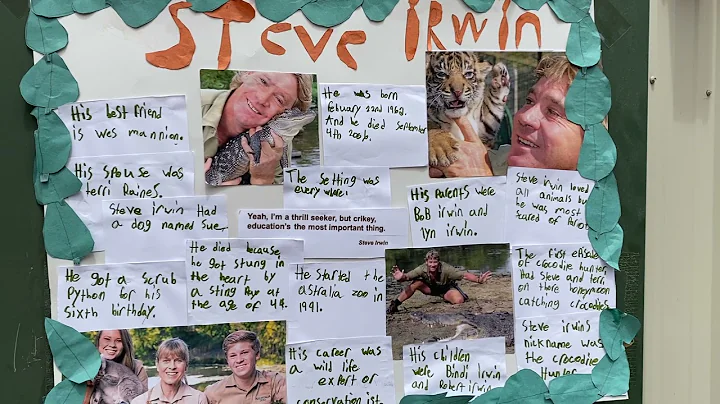 Steve irwin
His best friend
is wes mannion.
He was born
febuary 22nd 1962.
And he died september
4th 2006.
His spouse was
terri Raines.
The setting was
every where.
His Parents were
Bob irwin and
lyn irwin.
Steve irwin loved
all animals but
he was most
scared of Parrots
Steve irwin Had
a dog named Sue.
Yeah, I'm a thrill seeker, but crikey,
education's the most important thing.
Steve Irwin
He got a Scrub
Python for his
Sixth birthday.
He died because
he got stung in
the heart by
a sting Ray at
the age of 44.
He started the
australia zoo in
1991.
The first episode
of crocodie hunter
Had steve and terri
on there honeymoon
catching crocodiles
His career was a
wild life
expert or
conservationist.
His children
were Bindi irwin
and Robert irwin
Steve irwins
nickname was
the crocodie
Hunter